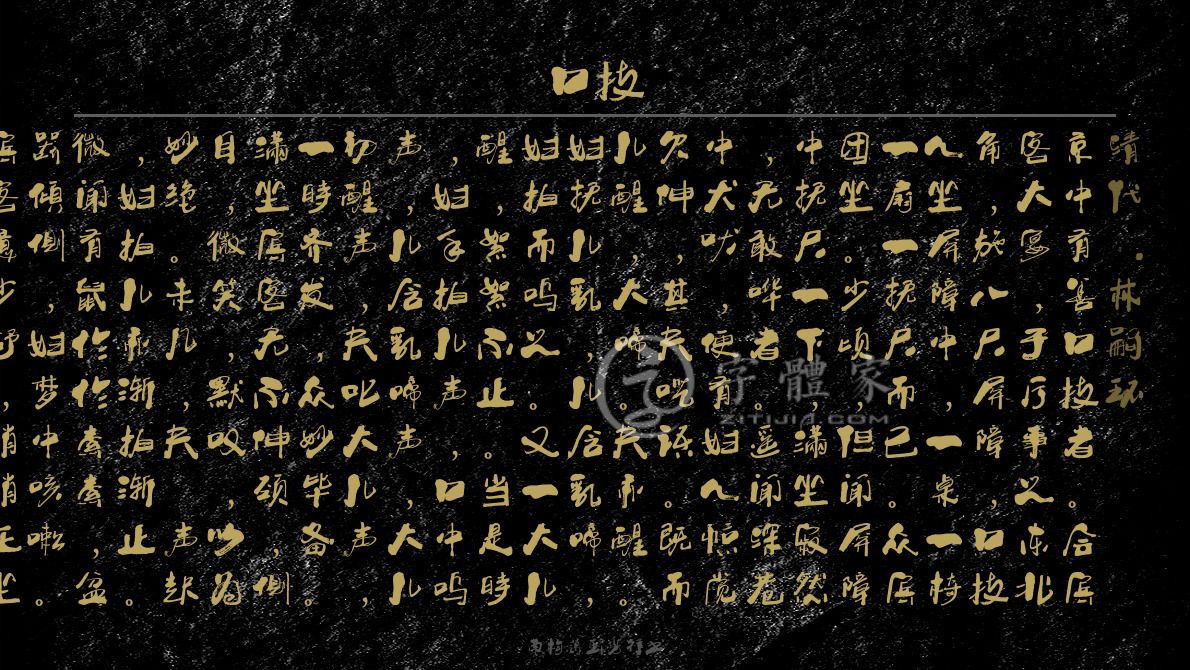 口技
清代·林嗣环
京中有善口技者。合宾
客大宴，于厅事之东北
角，施八尺屏障，口技
人坐屏障中，一桌一椅
一扇一抚尺而已。众宾
团坐。少顷，但闻屏障
中抚尺一下，满坐寂然
，无敢哗者。遥闻深巷
中犬吠，便有妇人惊觉
欠伸，其夫呓语。既而
儿醒，大啼。夫亦醒。
妇抚儿乳，儿含乳啼，
妇拍而呜之。又一大儿
醒，絮絮不止。当是時
，妇手拍儿声，口中呜
声，儿含乳啼声，大儿
初醒声，夫叱大儿声，
一時齐发，众妙毕备。
满坐宾客，无不伸颈，侧
目，微笑，默叹，以为
妙绝。未儿，夫声起
，妇拍儿亦渐拍渐止。
微闻有鼠作作索索，盆
器倾侧，妇梦中咳嗽。
宾客意少舒，稍稍正坐
字體家
ZITIJIA.COM